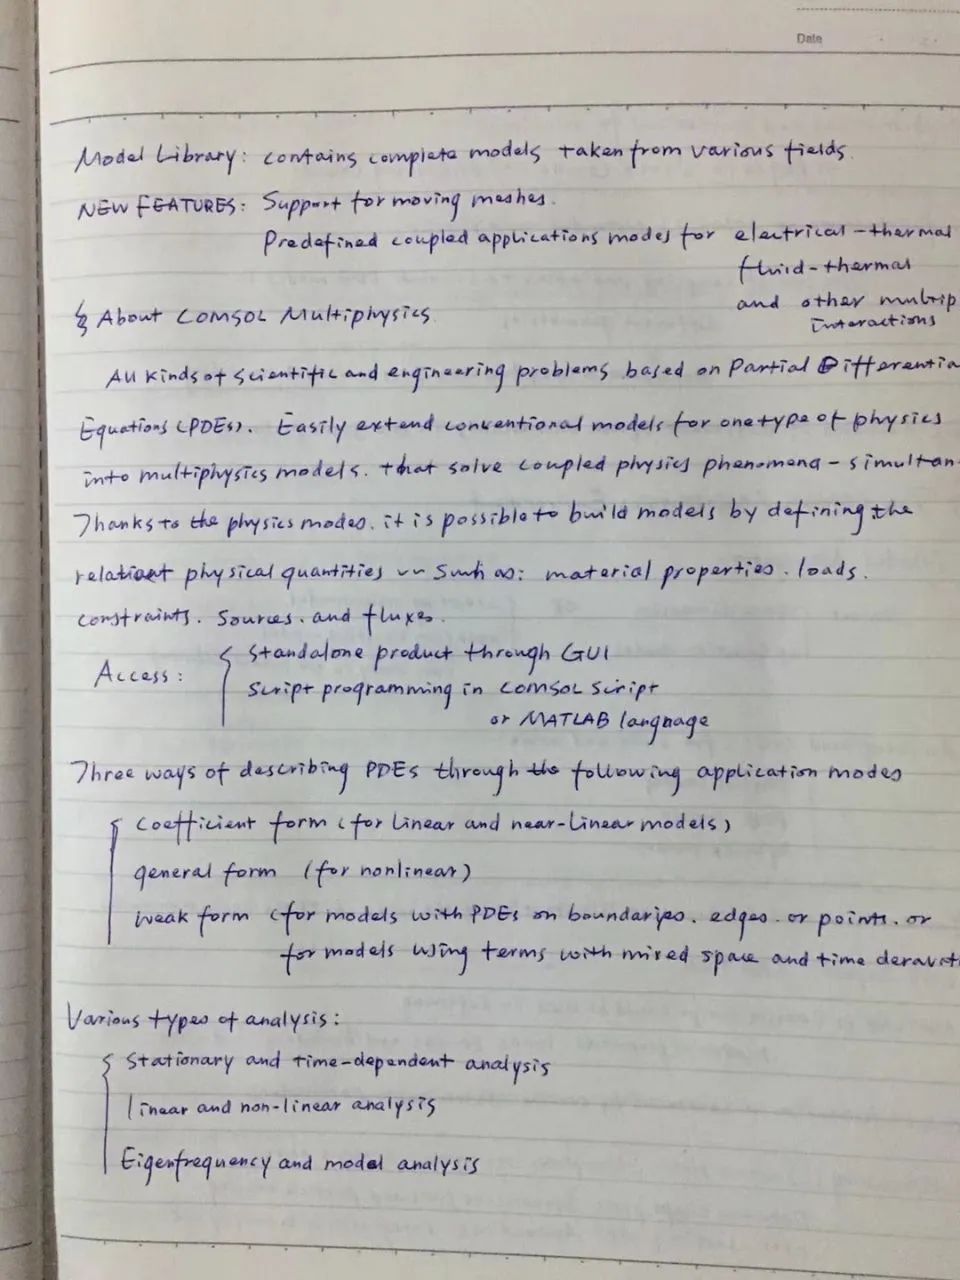 Date
Model Library: contains complete models taken from various fields.
NEW FEATURES: Support for moving meshes.
Predefined coupled applications modes for electrical-thermal
fluid-thermal
and other multip
interactions
§ About COMSOL Multiphysics
All kinds of scientific and engineering problems based on Partial Differentia
Equations (PDEs). Easily extend conventional models for one type of physics
into multiphysics models. that solve coupled physics phenomena - simultan
Thanks to the physics modes. it is possible to build models by defining the
physical quantities such as: material properties. loads.
constraints. sources. and fluxes.
Access: { Standalone product through GUI
Script programming in COMSOL script
or MATLAB language
Three ways of describing PDEs through the following application modes
{ coefficient form (for linear and near-linear models)
general form (for nonlinear)
weak form (for models with PDEs on boundaries. edges. or points. or
for models using terms with mixed space and time deravati
Various types of analysis:
{ Stationary and time-dependent analysis
linear and non-linear analysis
Eigenfrequency and model analysis